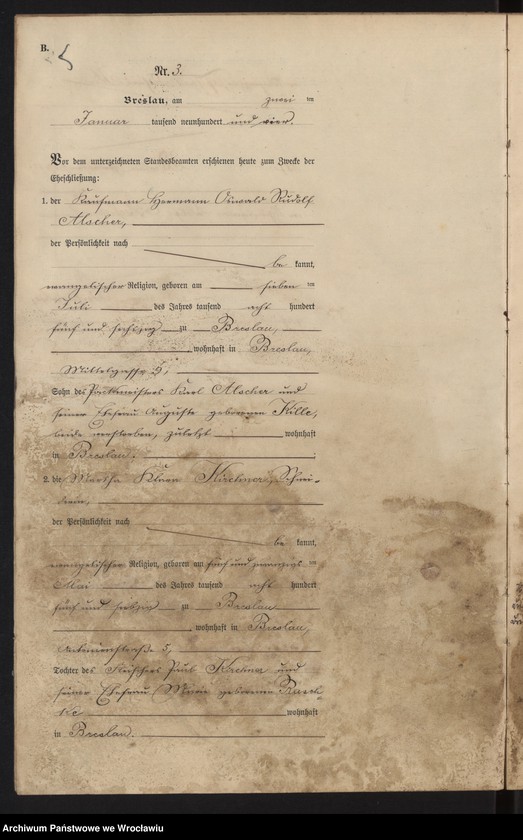 B.
Nr. 3.
Breslau, am zwei ten
Januar tausend neunhundert und vier.
Vor dem unterzeichneten Standesbeamten erschienen heute zum Zwecke der
Eheschließung:
1. der Kaufmann Hermann Oswald Rudolf
Alscher,
der Persönlichkeit nach
be kannt,
evangelischer Religion, geboren am sieben ten
Juli des Jahres tausend acht hundert
fünf und sechzig zu Breslau,
wohnhaft in Breslau,
Sohn des Packmeisters Karl Alscher und
seiner Ehefrau Auguste geborenen Kille,
beide verstorben, zuletzt wohnhaft
in Breslau.
2. die Martha Klara Kirchner, Schnei-
derin,
der Persönlichkeit nach
be kannt,
evangelischer Religion, geboren am fünf und zwanzigs ten
Mai des Jahres tausend acht hundert
fünf und siebzig zu Breslau
wohnhaft in Breslau,
5,
Tochter des Paul Kirchner und
seiner Ehefrau Marie geborenen
wohnhaft
in Breslau.
Archiwum Państwowe we Wrocławiu